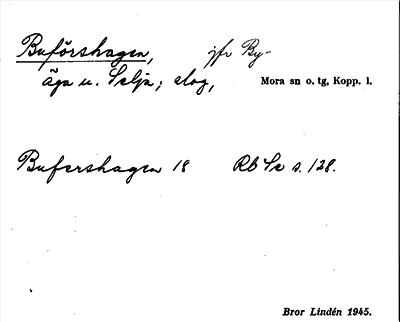 Buförshagen, jfr By-
äga u. Selja; slog, Mora sn o. tg, Kopp. l.
Bufershagen 18 Rb Se s. 128.
Bror Lindén 1945.